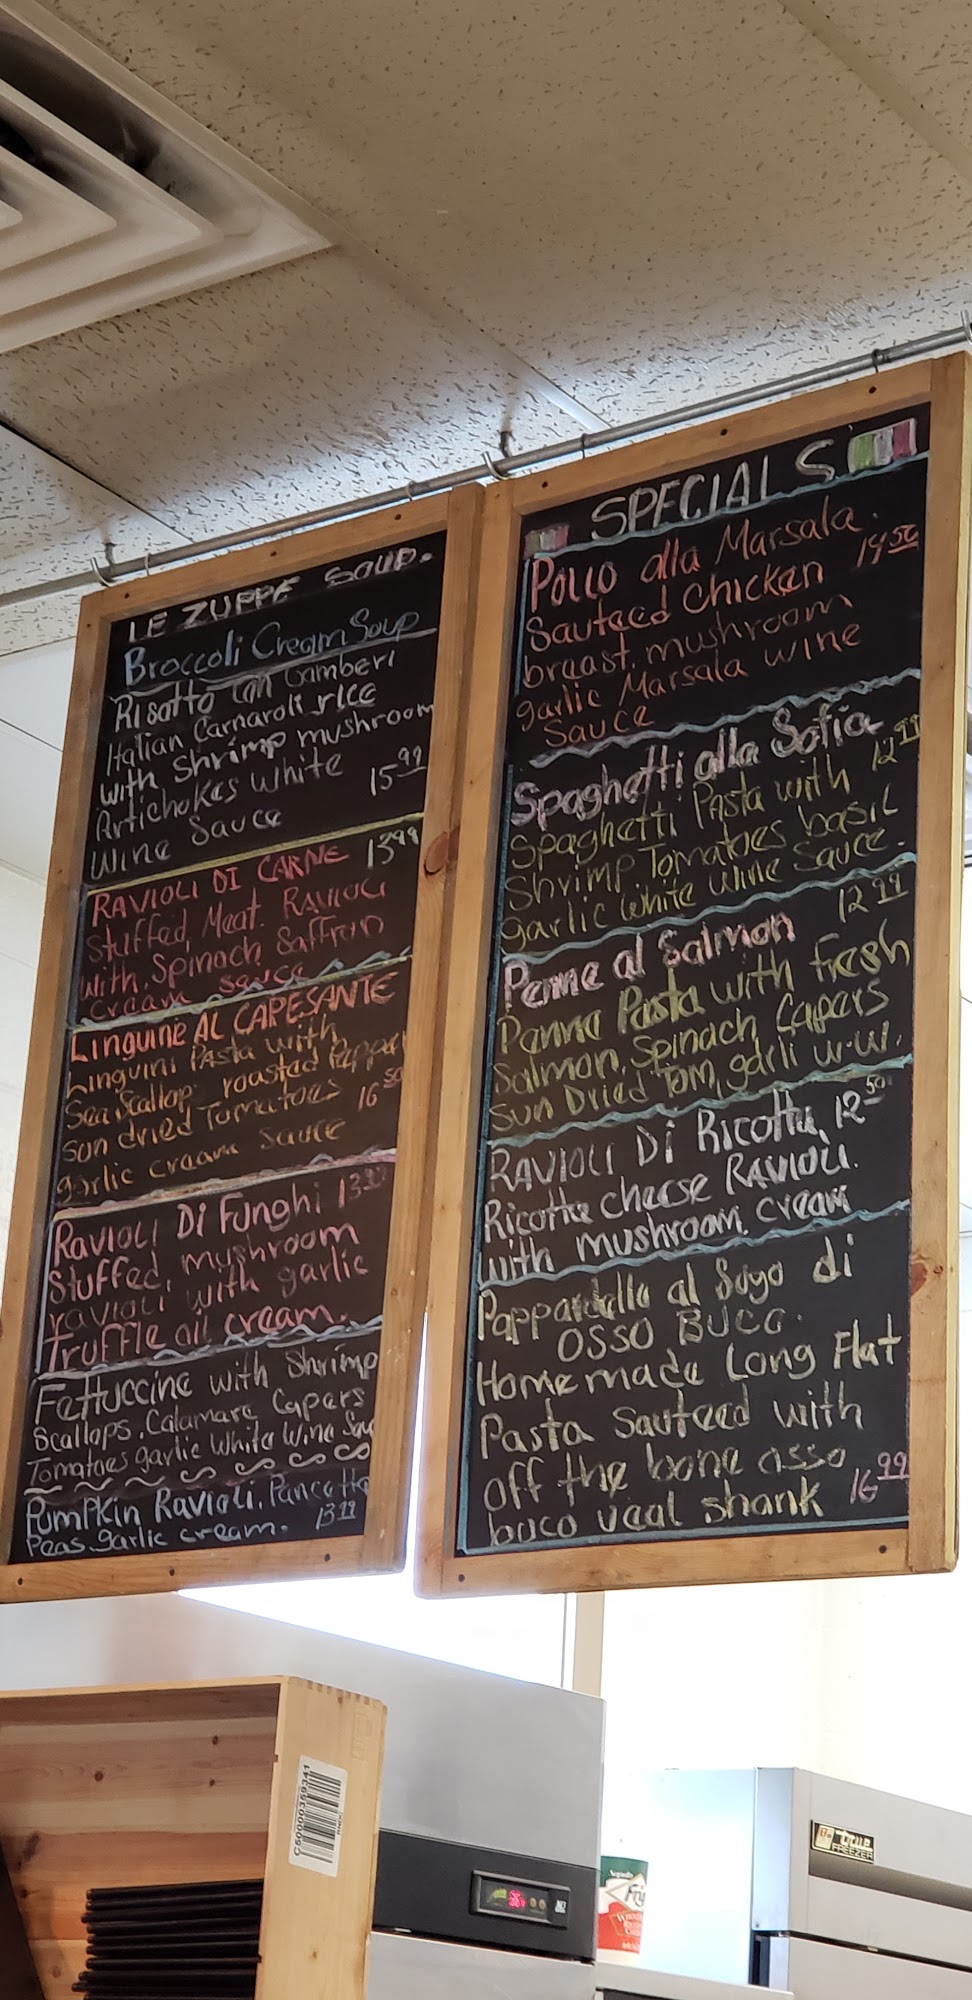 LE ZUPPE SOUP.
Broccoli Cream Soup
Risotto Con Gamberi
Italian Carnaroli rice
with Shrimp mushroom
Artichokes White 15.99
Wine Sauce
RAVIOLI DI CARNE 13.99
Stuffed, Meat. Ravioli
with, Spinach Saffron
Cream sauce
Linguine AL CAPESANTE
Linguini Pasta with
Sea Scallop roasted Pepper
Sun dried Tomatoes 16.50
garlic cream sauce
RAVIOLI Di Funghi
Stuffed, mushroom
ravioli with garlic
Truffle oil cream.
Fettuccine with Shrimp
Scallops. Calamare Capers
Tomatoes garlic White Wine
Pumpkin Ravioli. Pancetta
Peas garlic cream. 13.99
SPECIALS
Pollo alla Marsala.
Sauteed Chicken 14.50
breast, mushroom
garlic Marsala wine
Sauce
Spaghetti alla Sofia
Spaghetti Pasta with 12.99
Shrimp Tomatoes basil
garlic White Wine Sauce.
Penne al Salmon 12.99
Panna Pasta with fresh
Salmon, Spinach, Capers
Sun Dried Tom, garli w.w.
RAVIOLI Di Ricotta, 12.50
Ricotta cheese RAVIOLI.
with mushroom, cream
Pappardelle al Sugo di
OSSO BUCO.
Homemade Long Flat
Pasta Sauteed with
off the bone osso
buco veal shank 16.99
C50000359341
true
FREEZER